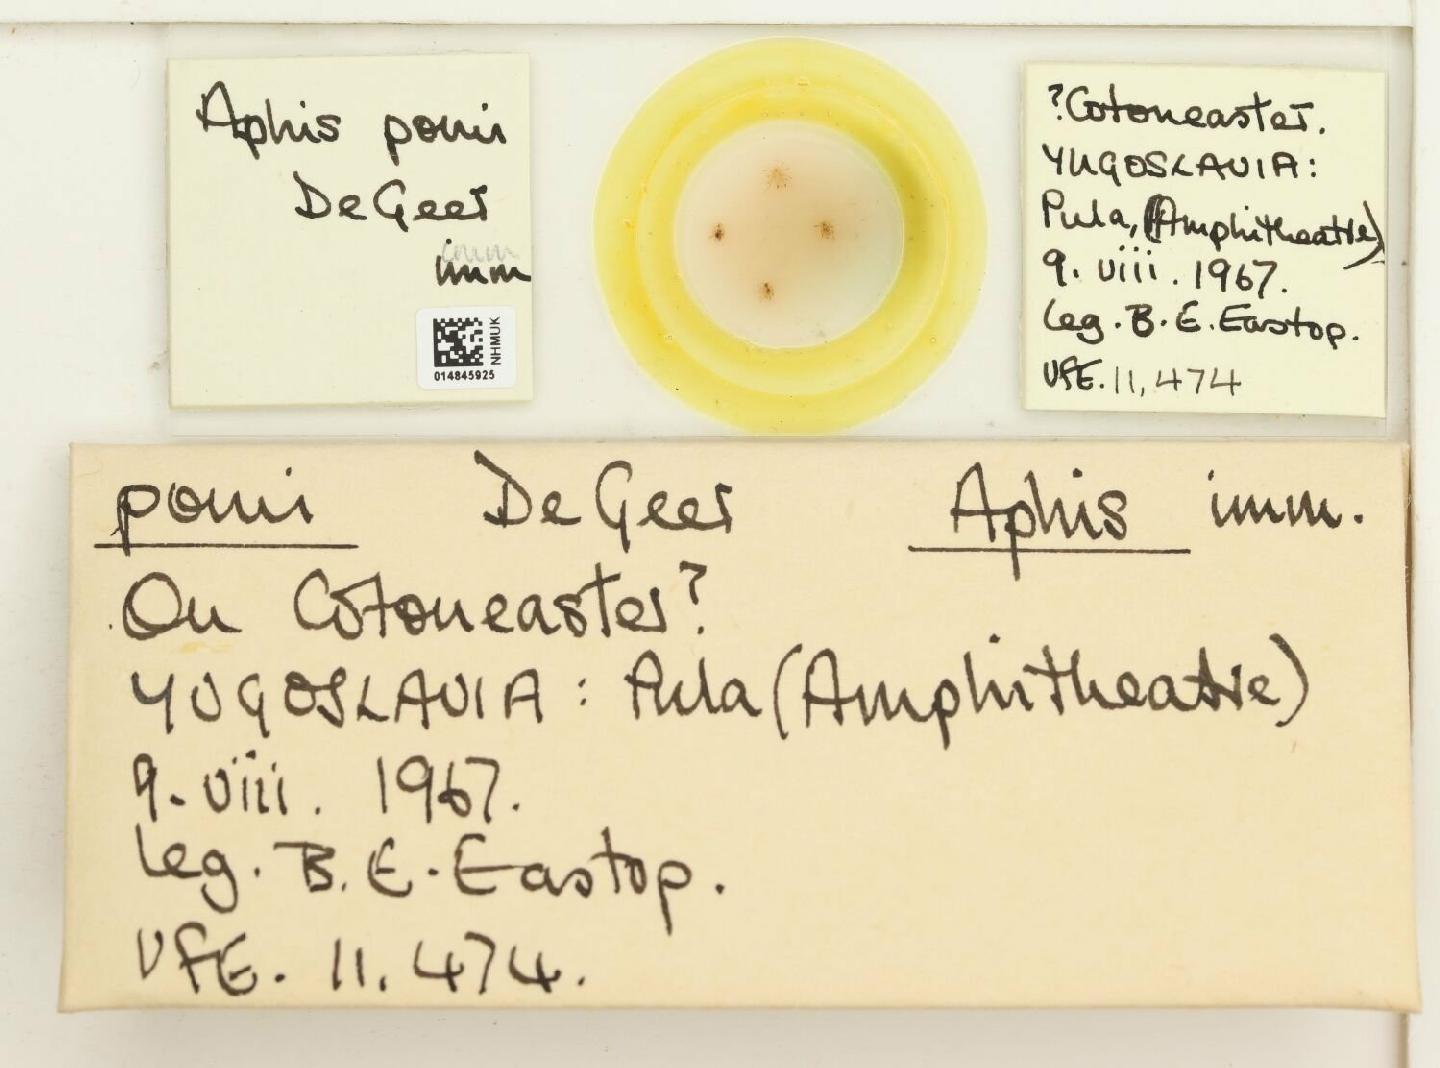 Aphis pomi
DeGeer
imm
imm
NHMUK
014845925
?Cotoneaster.
YUGOSLAVIA:
Pula, (Amphitheatre)
9. viii. 1967.
leg. B. E. Eastop.
VFE. 11,474
pomi DeGeer Aphis imm.
On Cotoneaster?
YUGOSLAVIA: Pula (Amphitheatre)
9. viii. 1967.
leg. B. E. Eastop.
VFE. 11.474.